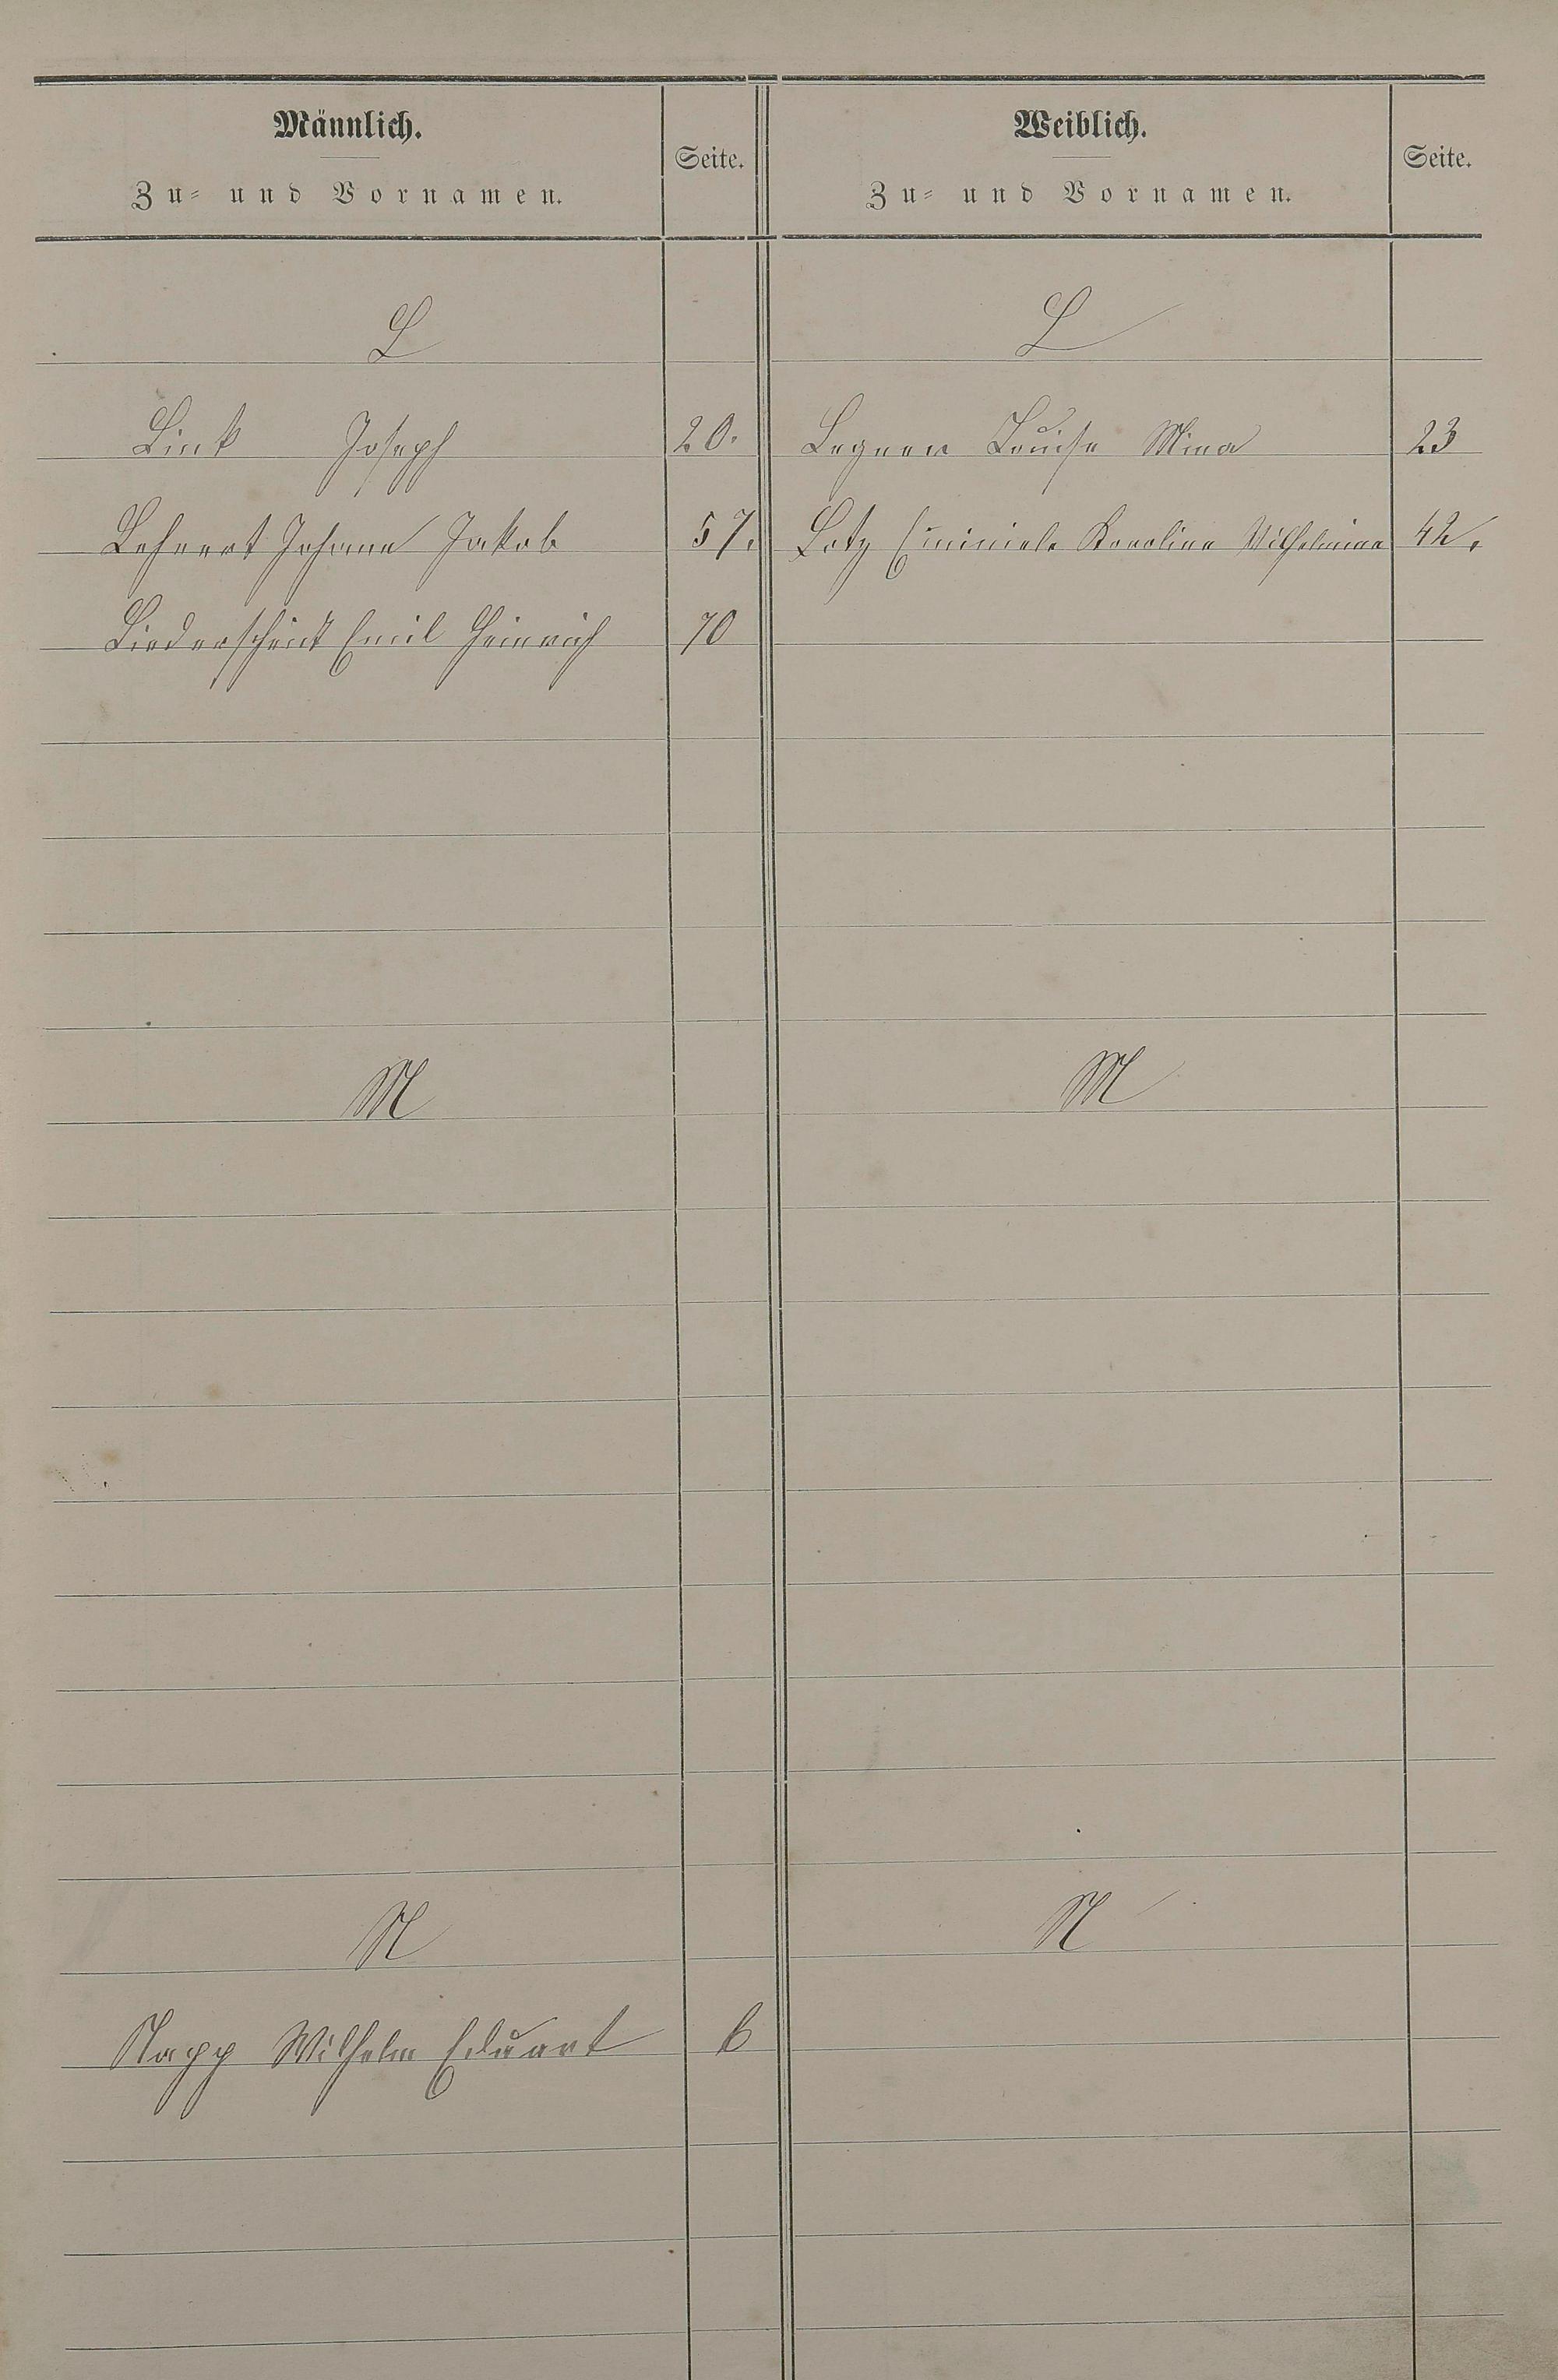 Männlich.
Zu- und Vornamen.
Seite.
Weiblich.
Zu- und Vornamen.
Seite.
L
L
Link Joseph 20.
Legner Louise Mina 23
Lehnert Johann Jakob 57.
Lotz Karoline Wilhelmine 42.
Liederschent Emil Heinrich 70
M
M
N
N
Napp Wilhelm Eduart 6